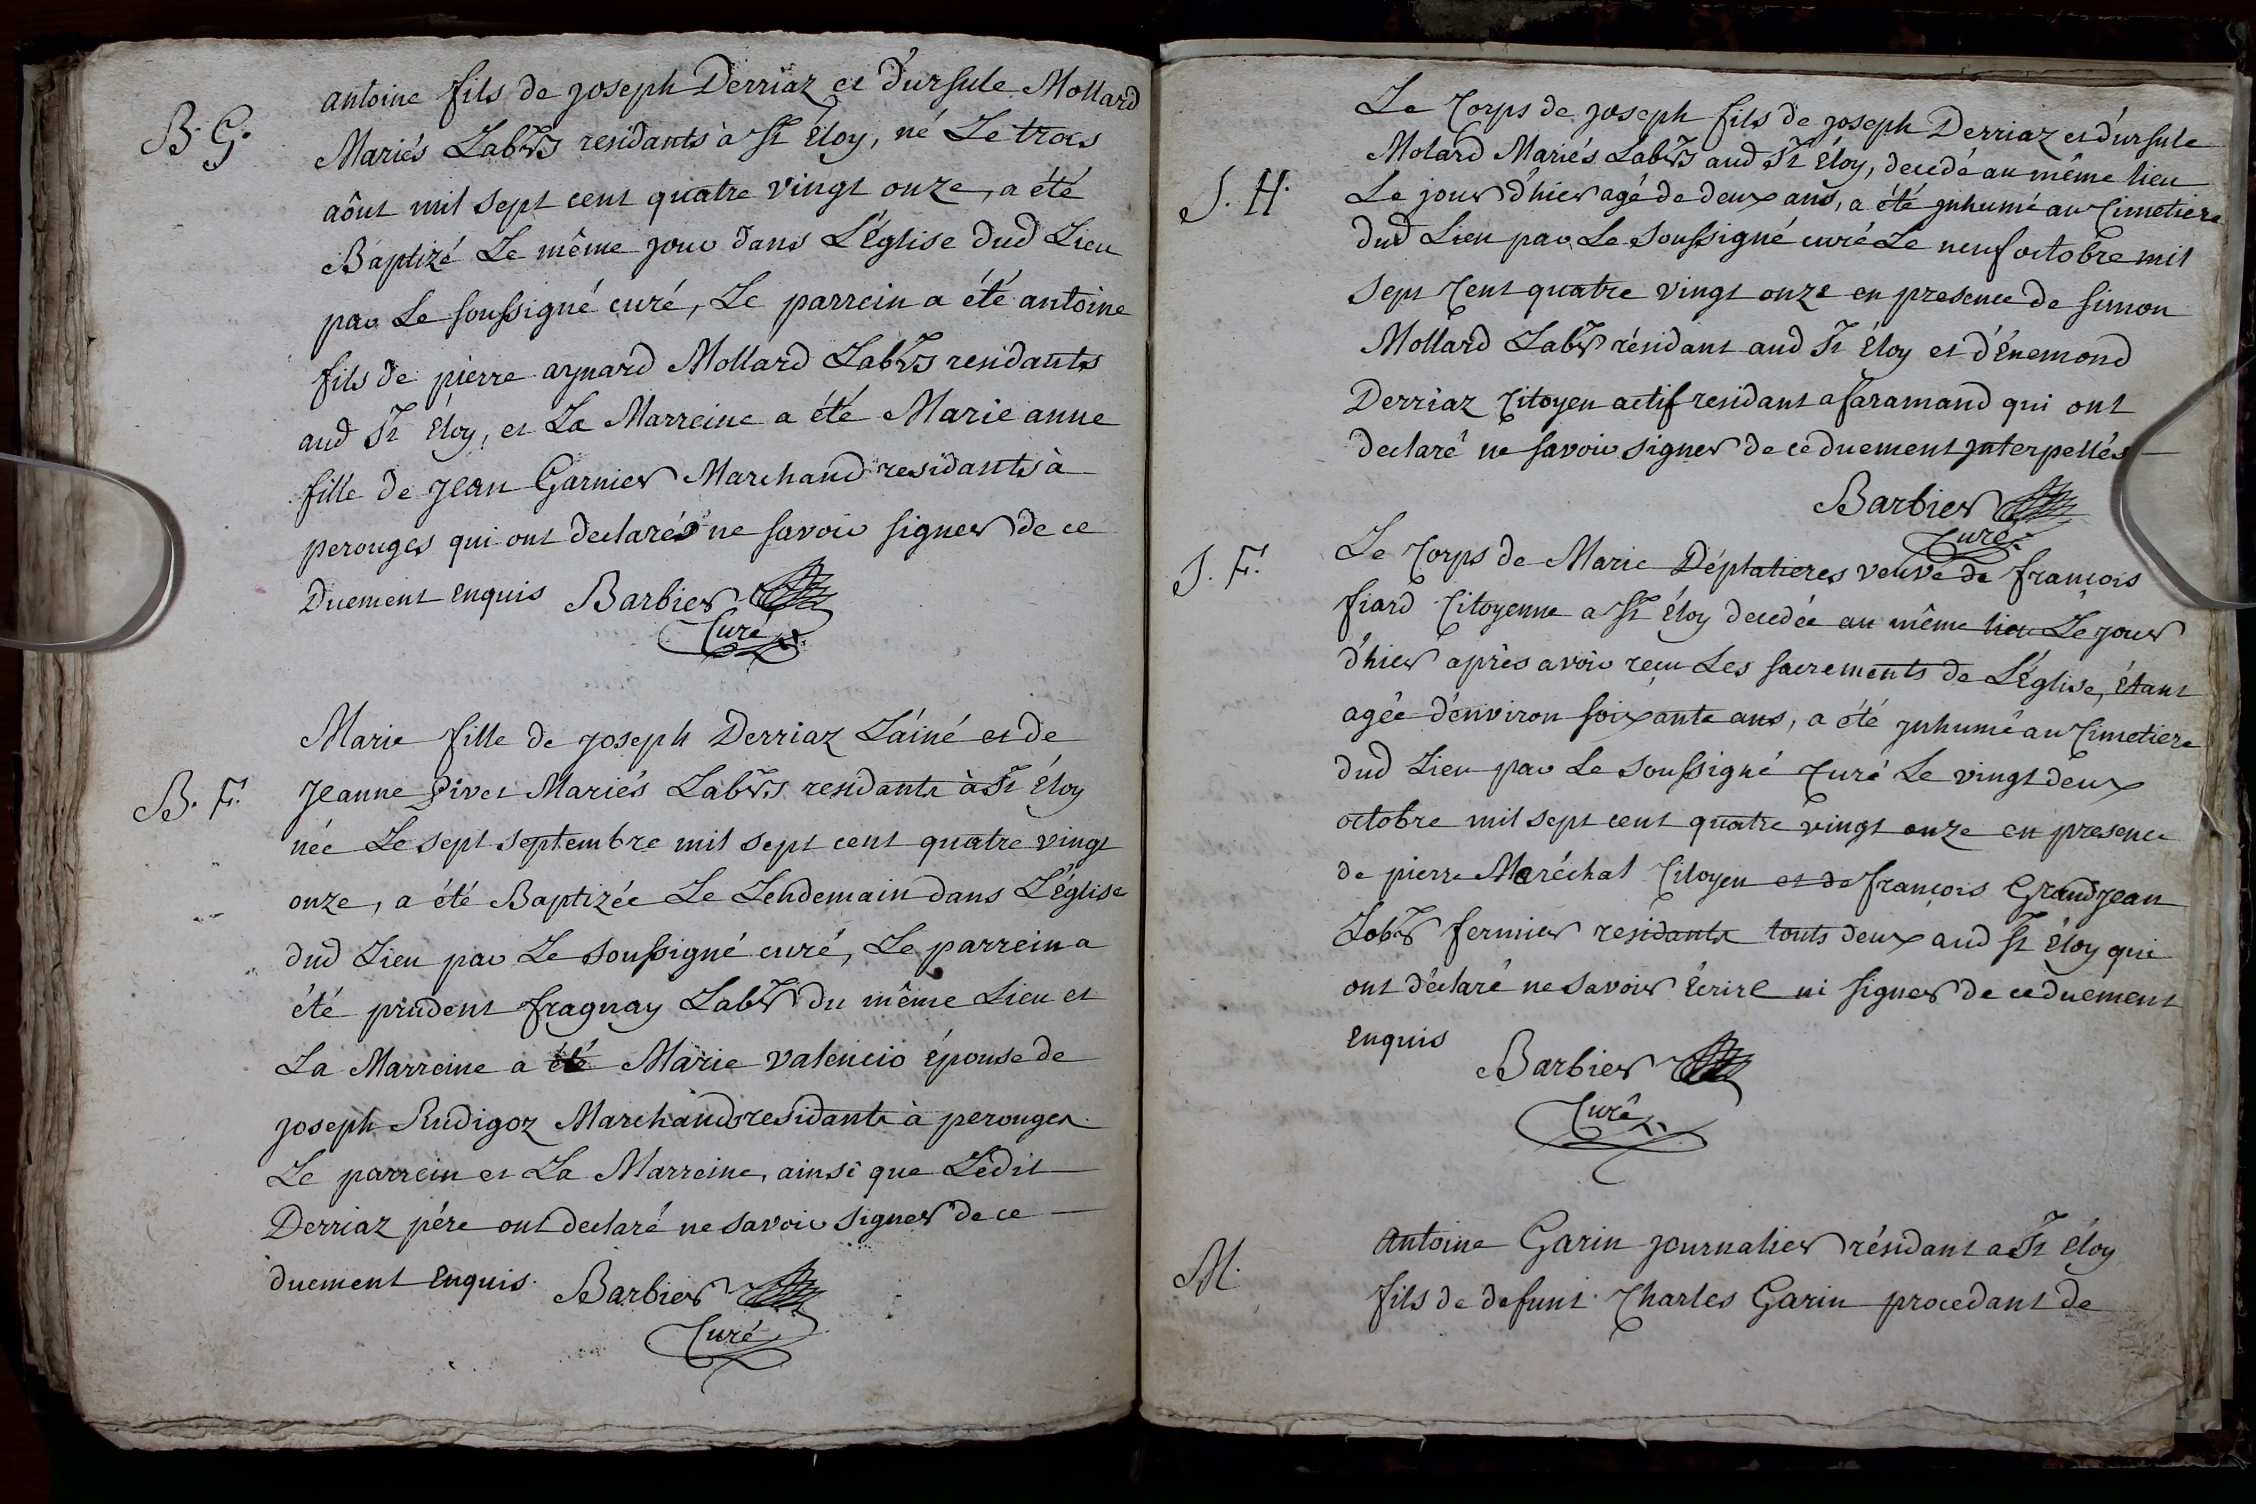 antoine fils de joseph Derriaz et d'ursule Mollard
B. G.
Mariés Labrs residants à St Éloy, né Le trois
aôut mil sept cent quatre vingt onze, a été
Baptizé Le même jour dans L'Église dud Lieu
par Le soussigné curé, Le parrein a été antoine
fils de pierre aynard Mollard Labrs residants
aud St Éloy, et La Marreine a été Marie anne
fille de jean Garnier Marchand residants à
perouges qui ont declarés ne savoir signer de ce
Duement enquis Barbier
Curé
Marie fille de joseph Derriaz L'áiné et de
B. F.
Jeanne Pivet Mariés Labrs residants à St Éloy
née Le sept septembre mil sept cent quatre vingt
onze, a été Baptizée Le Lendemain dans L'église
dud Lieu par Le soussigné curé, Le parrein a
été prudent fragnay Labr du même Lieu et
La Marreine a été Marie valencio épouse de
joseph Rudigoz Marchand residants à perouges
Le parrein et La Marreine, ainsi que Ledit
Derriaz pére ont declaré ne savoir signer de ce
duement enquis. Barbier
Curé
Le Corps de joseph fils de joseph Derriaz et d'ursule
Molard Mariés Labrs aud St Éloy, decedé au même lieu
S. H.
Le jour d'hier agé de deux ans, a été inhumé au Cimetiere
dud Lieu par Le soussigné curé Le neuf octobre mil
sept Cent quatre vingt onze en presence de simon
Mollard Labr résidant aud St Éloy et d'Énemond
Derriaz Citoyen actif residant a faramand qui ont
declaré ne savoir signer de ce duement interpellés
Barbier
Curé
S. F.
Le Corps de Marie Déplatieres veuve de françois
fiard Citoyenne a St Éloy decedée au même lieu Le jour
d'hier après avoir reçu Les sacrements de L'Église, étant
agée d'environ soixante ans, a été inhumé au Cimetiere
dud Lieu par Le soussigné Curé Le vingt deux
octobre mil sept cent quatre vingt onze en presence
de pierre Maréchal Citoyen et de françois Grandjean
Labr fermier residants touts deux aud St Éloy qui
ont déclaré ne savoir Écrire ni signer de ce duement
enquis
Barbier
Curé
Antoine Garin journalier résidant a St éloy
M.
fils de defunt Charles Garin procedant de